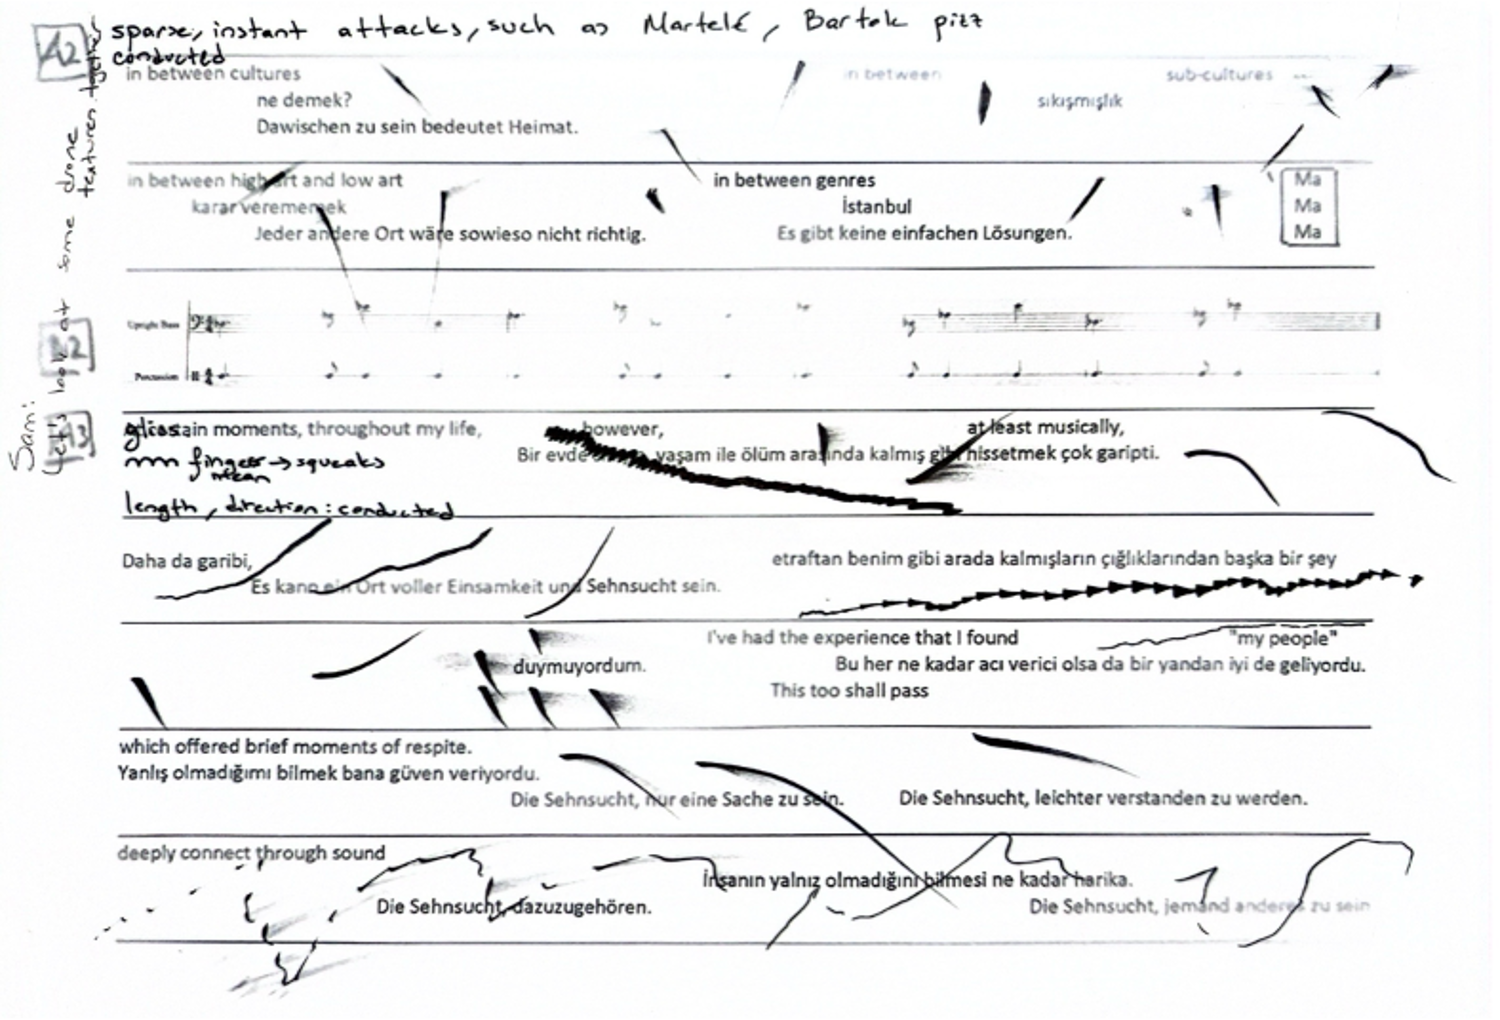 A2
sparse, instant attacks, such as Martelé, Bartok pizz
conducted
in between cultures
in between
sub-cultures ...
ne demek?
sıkışmışlık
Dawischen zu sein bedeutet Heimat.
in between high art and low art
in between genres
Ma
karar verememek
İstanbul
Ma
Jeder andere Ort wäre sowieso nicht richtig.
Es gibt keine einfachen Lösungen.
Ma
Upright Bass
Percussion
Sami:
Let's look at some drone
textures together
A3
ain moments, throughout my life,
however,
at least musically,
gliss
finger → squeaks
mean
Bir evde yaşam ile ölüm arasında kalmış gibi hissetmek çok garipti.
length, direction: conducted
Daha da garibi,
etraftan benim gibi arada kalmışların çığlıklarından başka bir şey
Es kann ein Ort voller Einsamkeit und Sehnsucht sein.
I've had the experience that I found
"my people"
duymuyordum.
Bu her ne kadar acı verici olsa da bir yandan iyi de geliyordu.
This too shall pass
which offered brief moments of respite.
Yanlış olmadığımı bilmek bana güven veriyordu.
Die Sehnsucht, nur eine Sache zu sein.
Die Sehnsucht, leichter verstanden zu werden.
deeply connect through sound
İnsanın yalnız olmadığını bilmesi ne kadar harika.
Die Sehnsucht, dazuzugehören.
Die Sehnsucht, jemand anderes zu sein